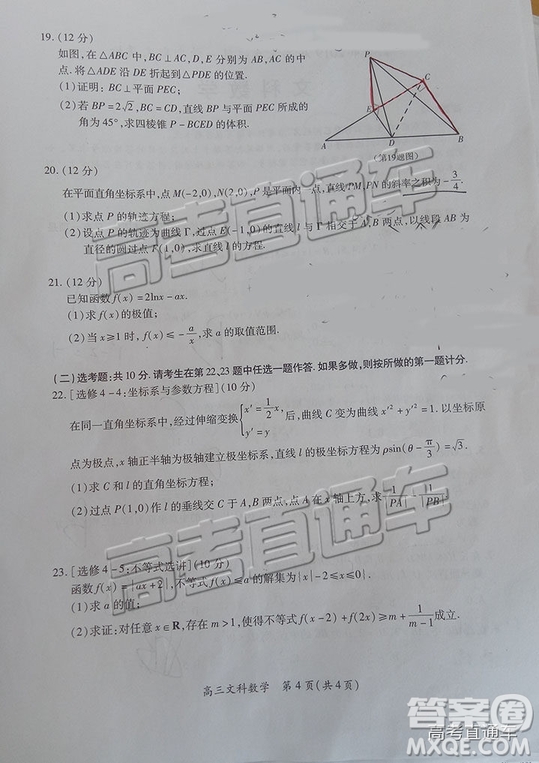 19. (12 分)
如图,在△ABC 中,BC⊥AC,D,E 分别为 AB,AC 的中
点.将△ADE 沿 DE 折起到△PDE 的位置.
(1)证明:BC⊥平面 PEC;
(2)若 BP=2√2,BC=CD,直线 BP 与平面 PEC 所成的
角为 45°,求四棱锥 P-BCED 的体积.
P
C
E
A
D
B
(第19题图)
20. (12 分)
在平面直角坐标系中,点 M(-2,0),N(2,0),P 是平面内一点,直线 PM,PN 的斜率之积为-3/4.
(1)求点 P 的轨迹方程;
(2)设点 P 的轨迹为曲线 Γ,过点 E(-1,0)的直线 l 与 Γ 相交于 A,B 两点,以线段 AB 为
直径的圆过点 F(1,0),求直线 l 的方程.
21. (12 分)
已知函数 f(x)=2lnx-ax.
(1)求 f(x)的极值;
(2)当 x≥1 时,f(x)≤-a/x,求 a 的取值范围.
(二)选考题:共 10 分. 请考生在第 22、23 题中任选一题作答. 如果多做,则按所做的第一题计分.
22. [选修 4-4:坐标系与参数方程](10 分)
在同一直角坐标系中,经过伸缩变换{x′=1/2x, y′=y 后,曲线 C 变为曲线 x′²+y′²=1. 以坐标原
点为极点,x 轴正半轴为极轴建立极坐标系,直线 l 的极坐标方程为 ρsin(θ-π/3)=√3.
(1)求 C 和 l 的直角坐标方程;
(2)过点 P(1,0)作 l 的垂线交 C 于 A,B 两点,点 A 在 x 轴上方,求 1/|PA| - 1/|PB|.
23. [选修 4-5:不等式选讲](10 分)
函数 f(x)=|ax+2|,不等式 f(x)≤a 的解集为{x|-2≤x≤0}.
(1)求 a 的值;
(2)求证:对任意 x∈R,存在 m>1,使得不等式 f(x-2)+f(2x)≥m+1/(m-1)成立.
高三文科数学 第 4 页(共 4 页)
高考直通车
高考直通车
答案圈
高考直通车
MXQE.COM